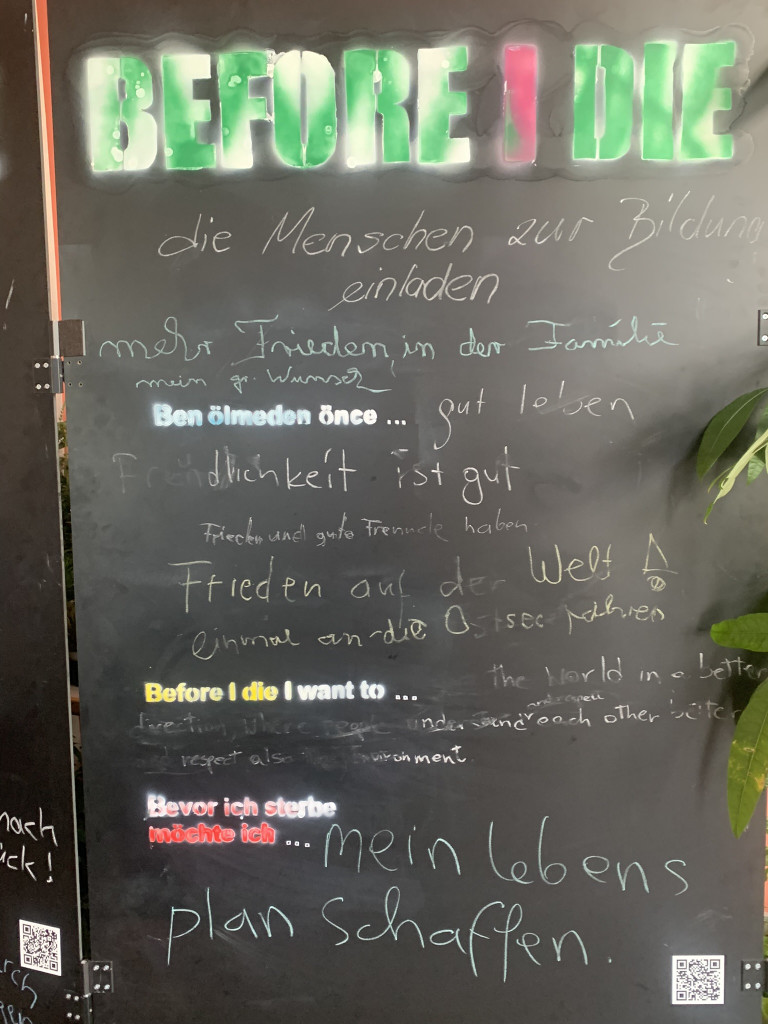 BEFORE I DIE
die Menschen zur Bildung
einladen
mehr Frieden in der Familie
mein gr. Wunsch
Ben ölmeden önce ... gut leben
Freundlichkeit ist gut
Frieden und gute Freunde haben
Frieden auf der Welt !
einmal an die Ostsee fahren
the World in a better
Before I die I want to ...
direction, where people understand each other better
and respect also the Environment.
Bevor ich sterbe
möchte ich ... mein lebens
plan schaffen.
nach
ück!